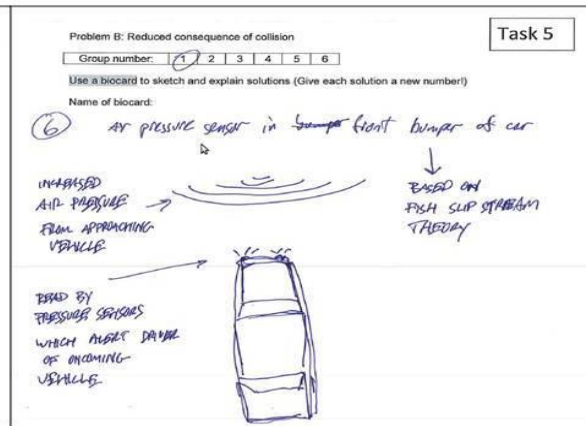 Problem B: Reduced consequence of collision
Task 5
Group number: 1 2 3 4 5 6
Use a biocard to sketch and explain solutions (Give each solution a new number!)
Name of biocard:
6 Air pressure sensor in bumper front bumper of car
INCREASED
AIR PRESSURE
FROM APPROACHING
VEHICLE
BASED ON
FISH SLIP STREAM
THEORY
READ BY
PRESSURE SENSORS
WHICH ALERT DRIVER
OF ONCOMING
VEHICLE